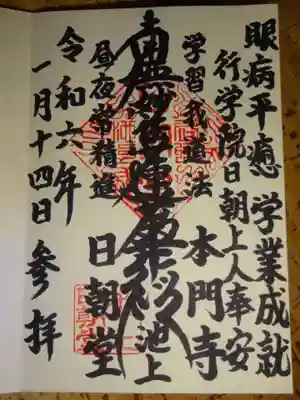 眼病平癒 学業成就
行学院日朝上人奉安
学習我道法 本門寺
南無妙法蓮華経
池上
昼夜常精進 日朝堂
令和六年
一月十四日参拝